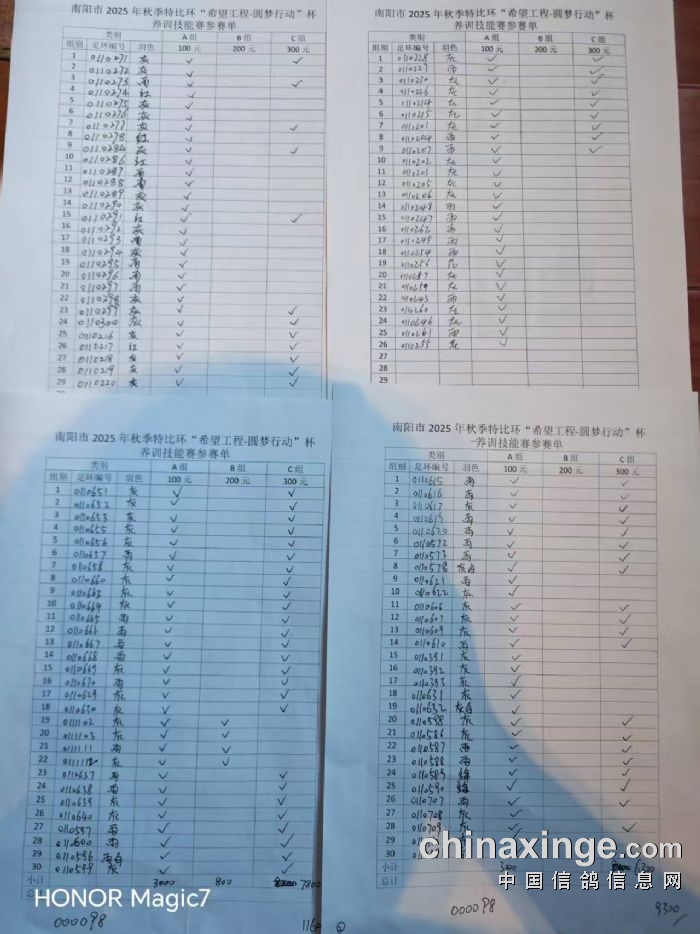 南阳市 2025 年秋季特比环“希望工程-圆梦行动”杯
养训技能赛参赛单
组别 类别 A 组 B 组 C 组
足环编号 羽色 100 元 200 元 300 元
1 0110271 灰 ✓ ✓
2 0110272 灰 ✓
3 0110273 雨 ✓ ✓
4 0110274 红 ✓
5 0110275 灰 ✓
6 0110276 灰 ✓
7 0110277 灰 ✓ ✓
8 0110278 红 ✓
9 0110284 灰 ✓ ✓
10 0110286 红 ✓
11 0110287 雨 ✓
12 0110288 雨 ✓
13 0110289 灰 ✓
14 0110290 灰 ✓
15 0110291 红 ✓ ✓
16 0110292 灰 ✓
17 0110293 雨 ✓
18 0110294 灰 ✓
19 0110295 雨 ✓
20 0110296 雨 ✓
21 0110297 雨 ✓
22 0110298 灰 ✓
23 0110299 灰 ✓ ✓
24 0110300 灰 ✓ ✓
25 0110216 灰 ✓ ✓
26 0110217 红 ✓ ✓
27 0110218 灰 ✓ ✓
28 0110219 灰 ✓ ✓
29 0110220 灰 ✓ ✓
南阳市 2025 年秋季特比环“希望工程-圆梦行动”杯
养训技能赛参赛单
组别 类别 A 组 B 组 C 组
足环编号 羽色 100 元 200 元 300 元
1 0110228 灰 ✓ ✓
2 0110229 雨 ✓ ✓
3 0110230 灰 ✓ ✓
4 0110226 灰 ✓ ✓
5 0110214 灰 ✓ ✓
6 0110215 灰 ✓ ✓
7 0110201 灰 ✓ ✓
8 0110204 雨 ✓ ✓
9 0110207 雨 ✓ ✓
10 0110202 灰 ✓
11 0110203 灰 ✓
12 0110205 灰 ✓
13 0110206 灰 ✓
14 0110248 雨 ✓
15 0110247 雨 ✓
16 0110262 雨 ✓
17 0110245 雨 ✓
18 0110254 雨 ✓
19 0110256 ✓
20 0110257 灰 ✓
21 0110259 灰 ✓
22 0110243 雨 ✓
23 0110260 灰 ✓
24 0110246 灰 ✓
25 0110261 雨 ✓
26 0110255 ✓
27
28
29
南阳市 2025 年秋季特比环“希望工程-圆梦行动”杯
养训技能赛参赛单
组别 类别 A 组 B 组 C 组
足环编号 羽色 100 元 200 元 300 元
1 0110651 灰 ✓ ✓
2 0110652 灰 ✓ ✓
3 0110653 灰 ✓ ✓
4 0110655 灰 ✓ ✓
5 0110656 灰 ✓ ✓
6 0110657 雨 ✓ ✓
7 0110658 灰 ✓ ✓
8 0110660 灰 ✓ ✓
9 0110663 灰 ✓ ✓
10 0110664 灰 ✓ ✓
11 0110665 雨 ✓ ✓
12 0110666 雨 ✓ ✓
13 0110667 雨 ✓ ✓
14 0110668 雨 ✓ ✓
15 0110669 灰 ✓ ✓
16 0110670 雨 ✓ ✓
17 0110629 灰 ✓ ✓
18 0110630 灰 ✓ ✓
19 0111102 灰 ✓ ✓
20 0111103 灰 ✓ ✓
21 0111111 雨 ✓ ✓
22 0111112 灰 ✓ ✓
23 0110637 雨 ✓ ✓
24 0110638 雨 ✓ ✓
25 0110639 灰 ✓ ✓
26 0110640 灰 ✓ ✓
27 0110597 雨 ✓ ✓
28 0110600 雨 ✓ ✓
29 0110596 雨白 ✓ ✓
30 0110599 灰 ✓ ✓
小计 3000 800 7800
总
000098
南阳市 2025 年秋季特比环“希望工程-圆梦行动”杯
养训技能赛参赛单
组别 类别 A 组 B 组 C 组
足环编号 羽色 100 元 200 元 300 元
1 0110615 雨 ✓ ✓
2 0110616 雨 ✓ ✓
3 0110617 灰 ✓ ✓
4 0110619 雨 ✓ ✓
5 0110620 雨 ✓ ✓
6 0110572 雨 ✓ ✓
7 0110573 雨 ✓ ✓
8 0110578 灰白 ✓ ✓
9 0110621 雨 ✓
10 0110622 灰 ✓
11 0110606 灰 ✓ ✓
12 0110607 灰 ✓ ✓
13 0110609 灰 ✓ ✓
14 0110610 雨 ✓ ✓
15 0110391 灰 ✓
16 0110392 灰 ✓
17 0110393 灰 ✓
18 0110631 灰 ✓
19 0110632 灰白 ✓
20 0110598 灰 ✓ ✓
21 0110586 灰 ✓ ✓
22 0110587 雨 ✓ ✓
23 0110588 雨 ✓ ✓
24 0110589 绛 ✓ ✓
25 0110590 绛 ✓ ✓
26 0110707 雨 ✓ ✓
27 0110708 灰 ✓
28 0110709 灰 ✓ ✓
29
30
小计 3000 6300
总计
000098 9300
HONOR Magic7
chinaxinge.com
中国信鸽信息网